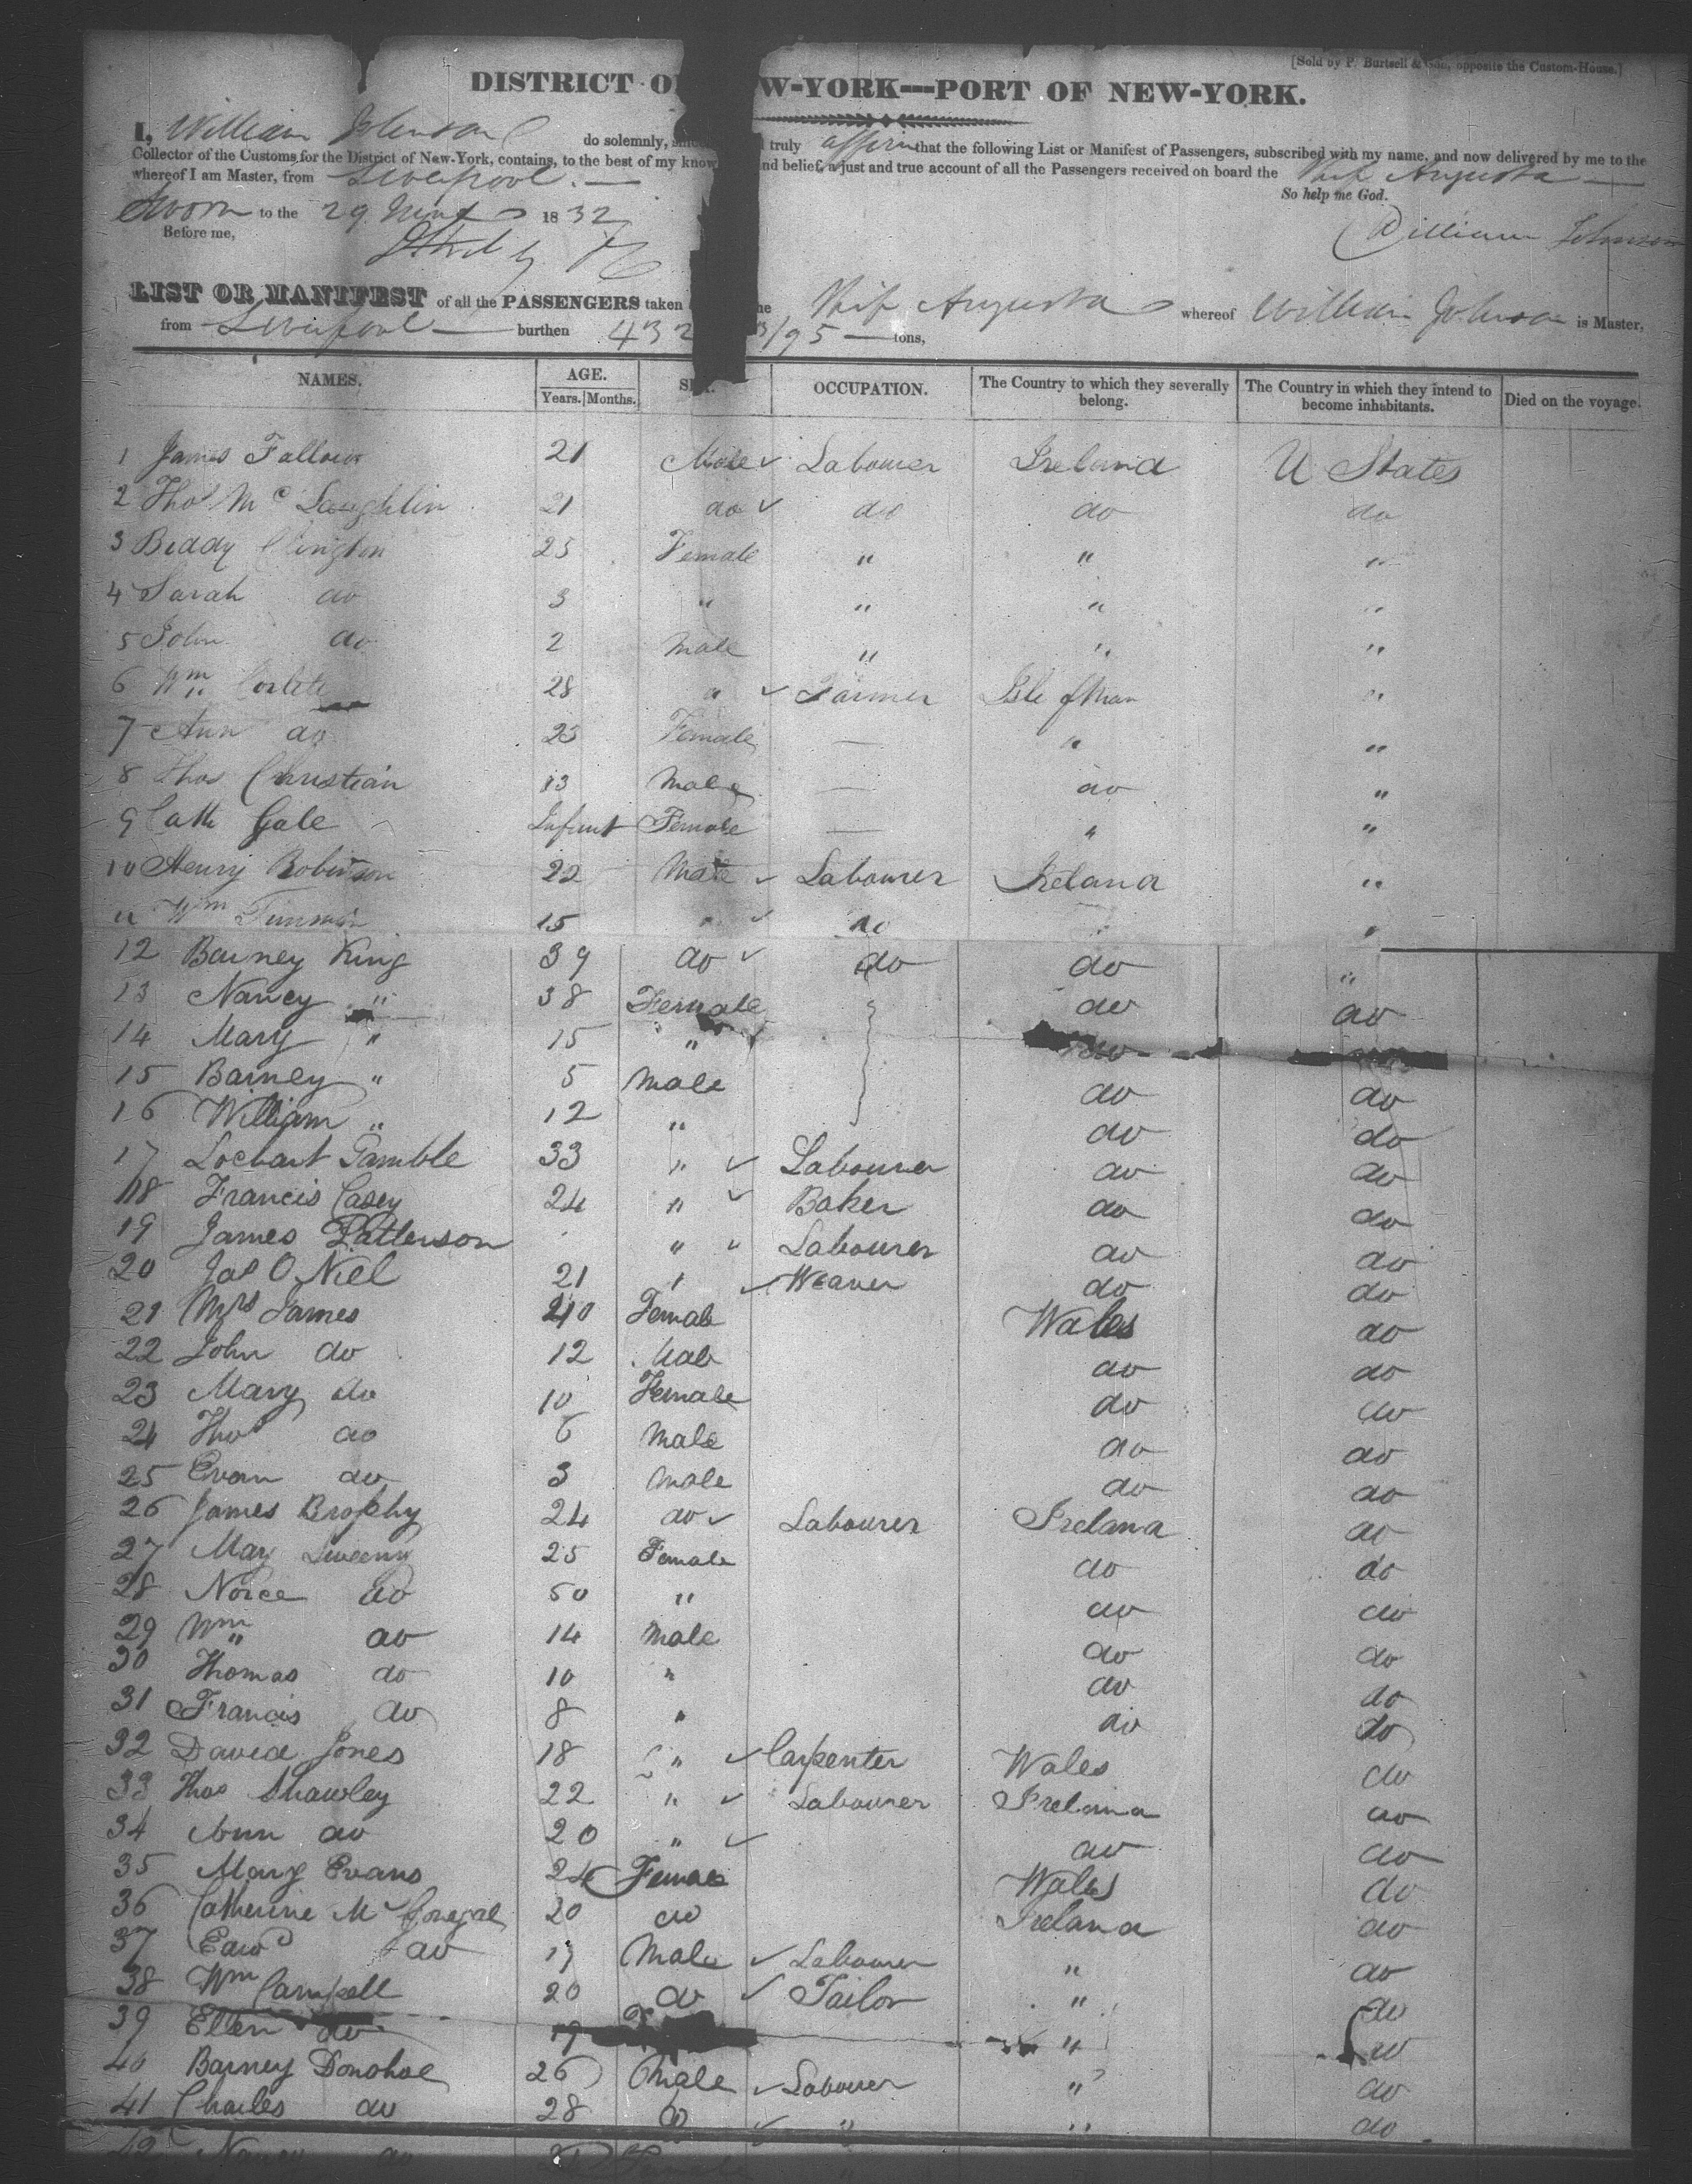 [Sold by P. Burtsell & Son, opposite the Custom-House.]
DISTRICT OF NEW-YORK---PORT OF NEW-YORK.
I, William Johnson do solemnly, truly affirm that the following List or Manifest of Passengers, subscribed with my name, and now delivered by me to the
Collector of the Customs for the District of New-York, contains, to the best of my know and belief, a just and true account of all the Passengers received on board the Ship Augusta
whereof I am Master, from Liverpool.
So help me God.
Sworn to the 29 1832
Before me,
William Johnson
LIST OR MANIFEST of all the PASSENGERS taken the Ship Augusta whereof William Johnson is Master,
from Liverpool burthen 432 3/95 tons,
NAMES. AGE. Years. Months. OCCUPATION. The Country to which they severally belong. The Country in which they intend to become inhabitants. Died on the voyage.
1 James Fallour 21 Male Labourer Ireland U States
2 Thos McLaughlin 21 do do do do
3 Biddy 25 Female " " "
4 Sarah do 3 " " " "
5 John do 2 Male " " "
6 Wm Corlett 28 " Farmer Isle of Man "
7 Ann do 23 Female — " "
8 Thos Christian 13 Male — do "
9 Cath Gale Infant Female — " "
10 Henry Robinson 22 Male Labourer Ireland "
11 Wm 15 " do " "
12 Barney King 39 do do do "
13 Nancy " 38 Female do do
14 Mary " 15 " do
15 Barney " 5 Male do do
16 William " 12 " do do
17 Lochart Gamble 33 " Labourer do do
18 Francis Casey 24 " Baker do do
19 James Patterson " Labourer do do
20 Jas O Niel 21 " Weaver do do
21 Mrs James 40 Female Wales do
22 John do 12 Male do do
23 Mary do 10 Female do do
24 Thos do 6 Male do do
25 Evan do 3 Male do do
26 James Brophy 24 do Labourer Ireland do
27 May Sweeny 25 Female do do
28 Norce do 50 " do do
29 Wm do 14 Male do do
30 Thomas do 10 " do do
31 Francis do 8 " do do
32 David Jones 18 " Carpenter Wales do
33 Thos Shawley 22 " Labourer Ireland do
34 Ann do 20 " do do
35 Mary Evans 24 Female Wales do
36 Catherine Mc Gonegal 20 do Ireland do
37 Edwd do 17 Male Labourer " do
38 Wm Campell 20 do Tailor " do
39 Ellen do 19 " do
40 Barney Donohoe 26 Male Labourer " do
41 Charles do 28 do " " do
42 Nancy do Female